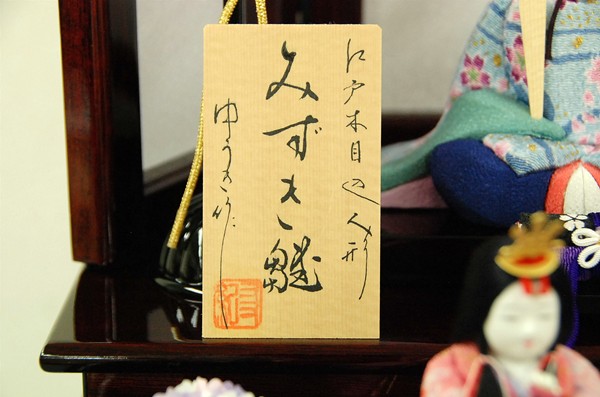 江戸木目込人形
みずき雛
ゆうき作